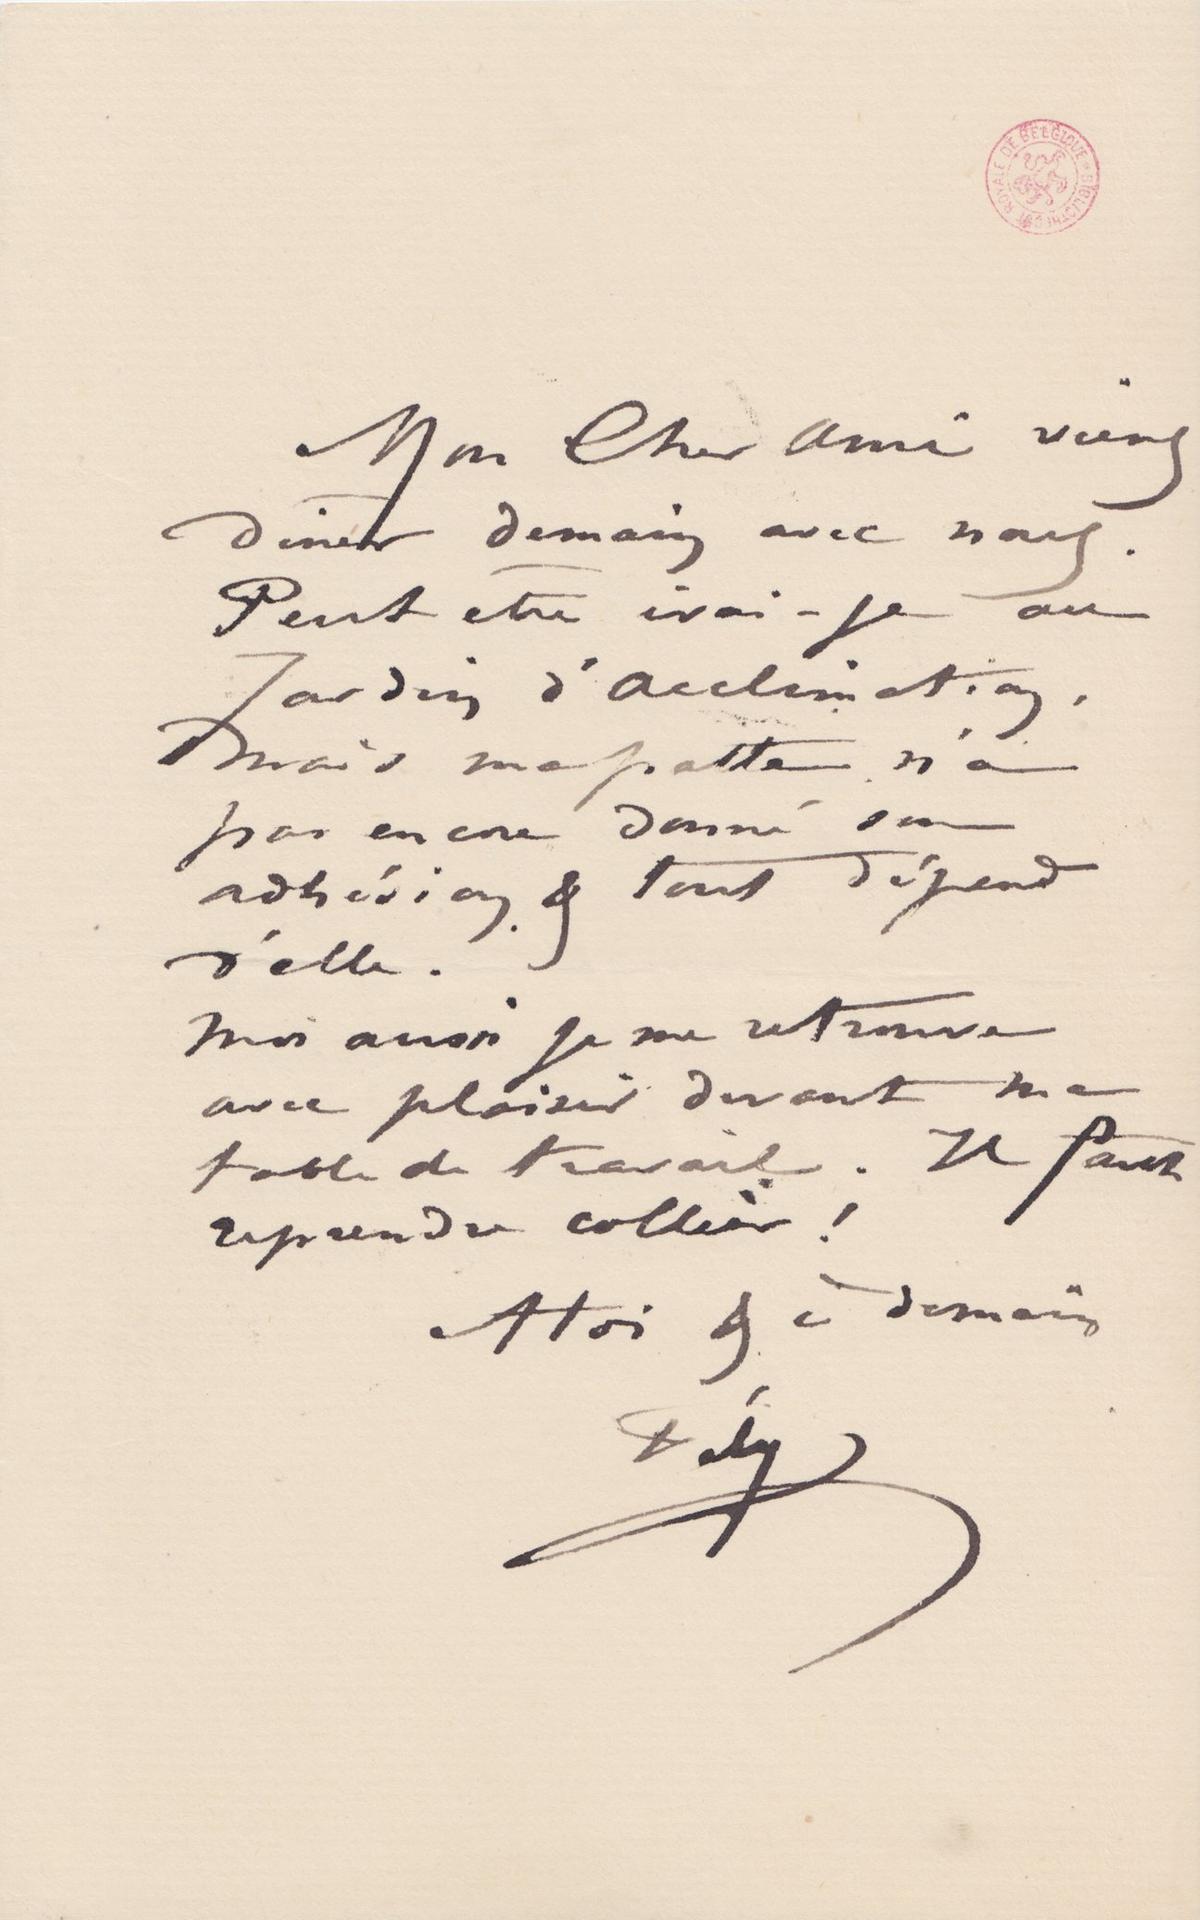 BIBLIOTHÈQUE ROYALE DE BELGIQUE
Mon Cher Ami viens
diner demain avec nous.
Peut etre irai-je au
Jardin d'Acclimation,
mais ma patte n'a
pas encore donné son
adhésion, & tout dépend
d'elle.
Moi aussi je me retrouve
avec plaisir devant ma
table de travail. Il faut
reprendre collier !
A toi & à demain
Fély